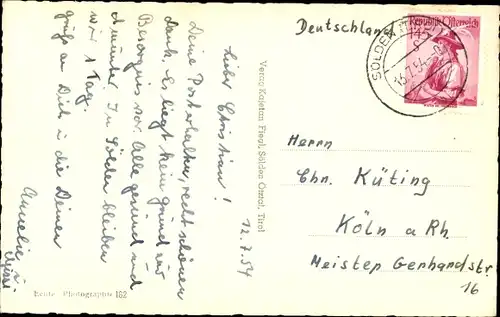 12.7.54
Lieber Christian!
Deine Post erhalten, recht schönen
Dank. Es liegt kein Grund zur
Besorgnis vor. Alle gesund und
munter. In Sölden bleiben
wir 1 Tag.
Gruß an Dich u. die Deinen
Amelie u.
Verlag Kajetan Fiegl, Sölden Ötztal, Tirol
Echte Photographie 182
Deutschland
SÖLDEN
Republik Österreich
145
Herrn
Chr. Küting
Köln a Rh.
Meister Gerhardstr
16